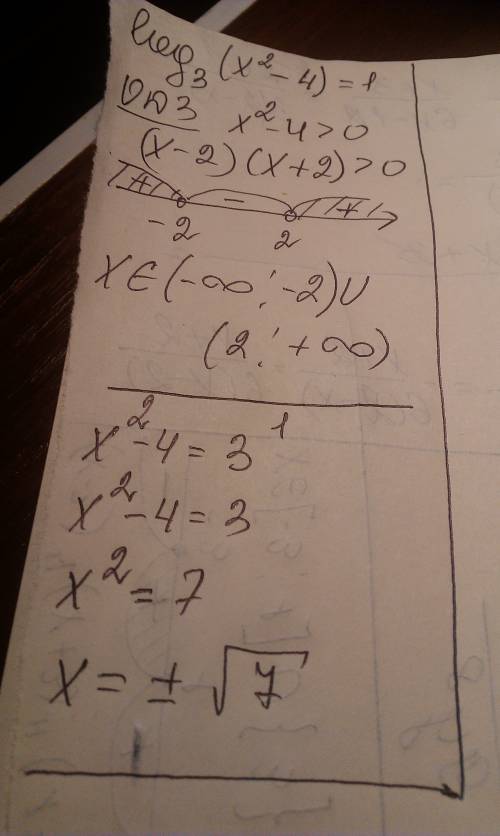 log₃(x² - 4) = 1
ОДЗ x² - 4 > 0
(x - 2)(x + 2) > 0
+ - +
-2 2
X ∈ (-∞; -2) ∪
(2; +∞)
x² - 4 = 3¹
x² - 4 = 3
x² = 7
x = ± √7